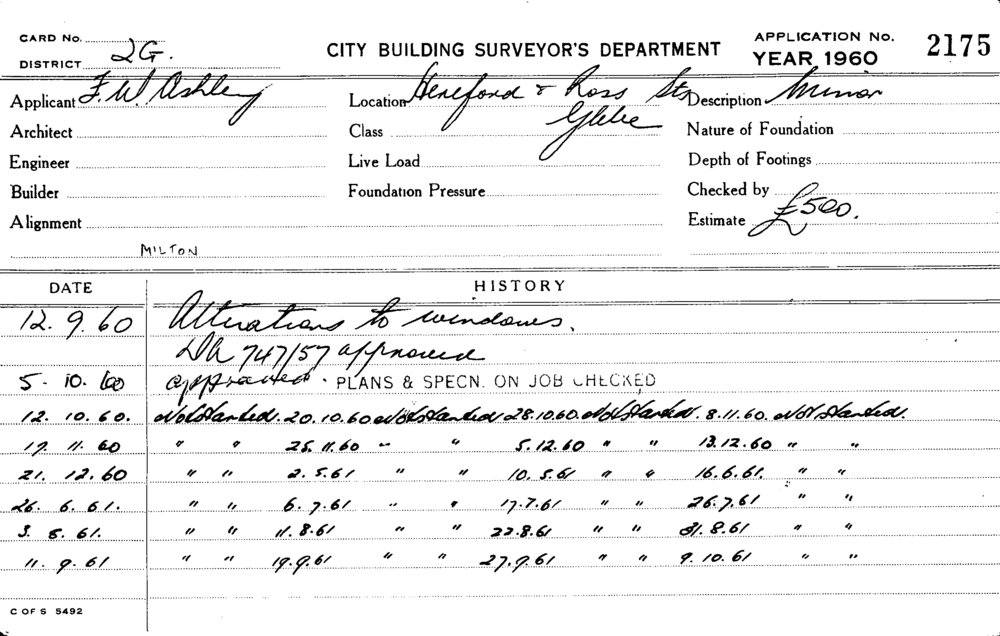 CARD No.
DISTRICT 2G.
CITY BUILDING SURVEYOR'S DEPARTMENT
APPLICATION No. 2175
YEAR 1960
Applicant F. W. Ashley
Location Hereford & Ross Sts
Glebe
Description Minor
Architect
Class
Nature of Foundation
Engineer
Live Load
Depth of Footings
Builder
Foundation Pressure
Checked by
Alignment
Estimate £500.
MILTON
DATE HISTORY
12. 9. 60 Alterations to windows.
DA 747/57 approved
5. 10. 60 approved. PLANS & SPECN. ON JOB CHECKED
12. 10. 60. Not Started. 20. 10. 60 Not Started 28. 10. 60. Not Started. 8. 11. 60. Not Started.
17. 11. 60 " " 25. 11. 60 " " 5. 12. 60 " " 13. 12. 60 " "
21. 12. 60 " " 2. 5. 61 " " 10. 5. 61 " " 16. 6. 61. " "
26. 6. 61. " " 6. 7. 61 " " 17. 7. 61 " " 26. 7. 61 " "
3. 8. 61. " " 11. 8. 61 " " 22. 8. 61 " " 31. 8. 61 " "
11. 9. 61 " " 19. 9. 61 " " 27. 9. 61 " " 9. 10. 61 " "
C OF S 5492